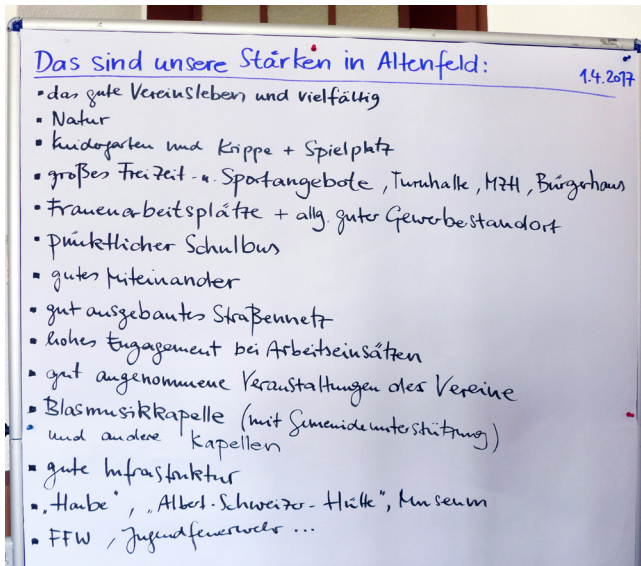 Das sind unsere Stärken in Altenfeld:
1.4.2017
• das gute Vereinsleben und vielfältig
• Natur
• Kindergarten und Krippe + Spielplatz
• großes Freizeit- u. Sportangebote, Turnhalle, MZH, Bürgerhaus
• Frauenarbeitsplätze + allg. guter Gewerbestandort
• pünktlicher Schulbus
• gutes Miteinander
• gut ausgebautes Straßennetz
• hohes Engagement bei Arbeitseinsätzen
• gut angenommene Veranstaltungen der Vereine
• Blasmusikkapelle (mit Gemeindeunterstützung)
und andere Kapellen
• gute Infrastruktur
• „Haube", „Albert-Schweizer-Hütte", Museum
• FFW, Jugendfeuerwehr ...